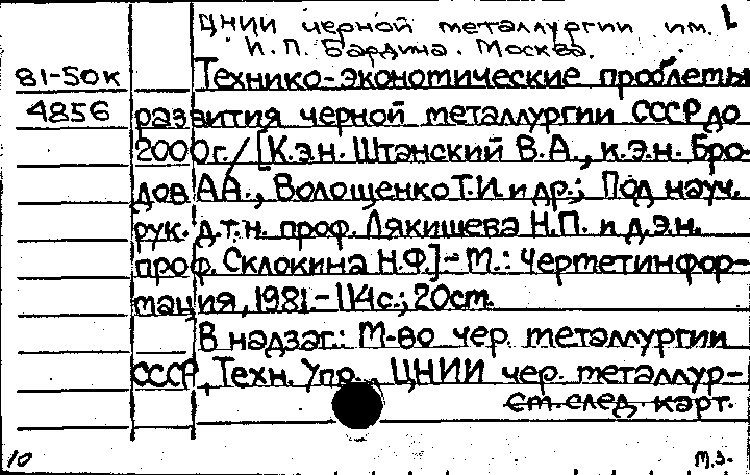 ЦНИИ черной металлургии им. 1
И.П. Бардина. Москва.
81-50К Технико-экономические проблемы
4856 развития черной металлургии СССР до
2000г./ [К.э.н. Штанский В.А., к.э.н. Бро-
дов А.А., Волощенко Т.И. и др.; Под науч.
рук. д.т.н. проф. Лякишева Н.П. и д.э.н.
проф. Склокина Н.Ф.] - М.: Черметинфор-
мация, 1981 - 114с.; 20см.
В надзаг.: М-во чер. металлургии
СССР, Техн. Упр., ЦНИИ чер. металлур-
См. след. карт.
10 м.з.